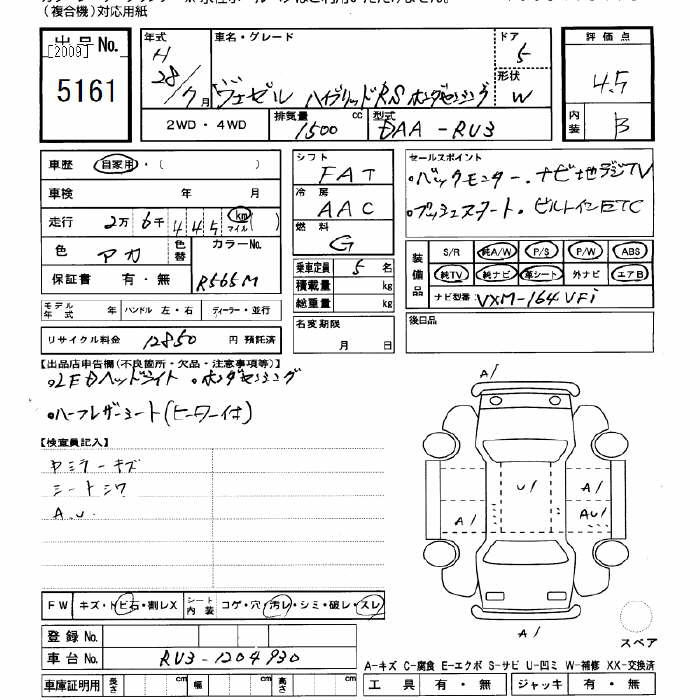 （複合機）対応用紙
出品No.
[2009]
5161
年式 H 28/7月
車名・グレード
ヴェゼル ハイブリッドRS ホンダセンシング
ドア 5
形状 W
2WD・4WD
排気量 1500 cc
型式 DAA-RU3
評価点
4.5
内装 B
車歴 自家用・( )
車検 年 月
走行 2万 6千 4 4 5 km マイル ( )
色 アカ
色替
カラーNo. R565M
保証書 有・無
モデル年式 年 ハンドル 左・右 ディーラー・並行
リサイクル料金 12850 円 預託済
シフト FAT
冷房 AAC
燃料 G
乗車定員 5 名
積載量 kg
総重量 kg
名変期限
月 日
セールスポイント
・バックモニター・ナビ地デジTV
・プッシュスタート・ビルトインETC
装備品
S/R 純A/W P/S P/W ABS
純TV 純ナビ 革シート 外ナビ エアB
ナビ型番 VXM-164VFi
後日品
【出品店申告欄(不良箇所・欠品・注意事項等)】
・LEDヘッドライト ・ホンダセンシング
・ハーフレザーシート(ヒーター付)
【検査員記入】
ヤミラーキズ
シートシワ
A.U.
A1
U1
A1
A1
AU1
A1
スペア
FW キズ・トビ石・割レX
シート内装 コゲ・穴・汚レ・シミ・破レ・スレ
登録No.
車台No. RU3-1204930
車庫証明用 長さ cm 幅 cm 高さ cm
A-キズ C-腐食 E-エクボ S-サビ U-凹ミ W-補修 XX-交換済
工具 有・無 ジャッキ 有・無